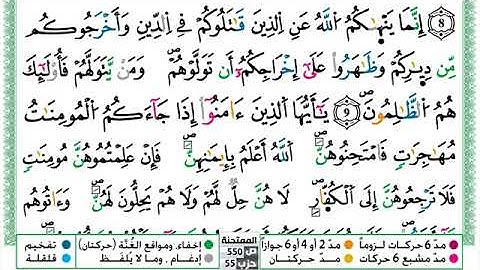 8 إِنَّمَا يَنْهَىٰكُمُ اُللَّهُ عَنِ اِلذِينَ قَٰتَلُوكُمْ فِے اِلدِّينِ وَأَخْرَجُوكُم
مِّن دِيٰرِكُمْ وَظَٰهَرُواْ عَلَىٰٓ إِخْرَاجِكُمُۥٓ أَن تَوَلَّوْهُمْۖ وَمَنْ يَّتَوَلَّهُمْ فَأُوْلَٰٓئِكَ
هُمُ اُلظَّٰلِمُونَۖ 9 يَٰٓأَيُّهَا اَلذِينَ ءَامَنُوٓاْ إِذَا جَآءَكُمُ اُلْمُومِنَٰتُ
مُهَٰجِرَٰتٖ فَامْتَحِنُوهُنَّۖ اَللَّهُ أَعْلَمُ بِإِيمَٰنِهِنَّۖ فَإِنْ عَلِمْتُمُوهُنَّ مُومِنَٰتٖ
فَلَا تَرْجِعُوهُنَّ إِلَى اَلْكُفّ۪ارِۖ لَا هُنَّ حِلّٞ لَّهُمْ وَلَا هُمْ يَحِلُّونَ لَهُنَّۖ وَءَاتُوهُم
مدّ 6 حركات لزوماً
مدّ 2 أو 4 أو 6 جوازاً
إخفاء، ومواقع الغُنَّة (حركتان)
تفخيم
مدّ مشبع 6 حركات
مدّ حركتان
إدغام، وما لا يُلفَظ
قلقلة
الممتحنة
550
حزب 55